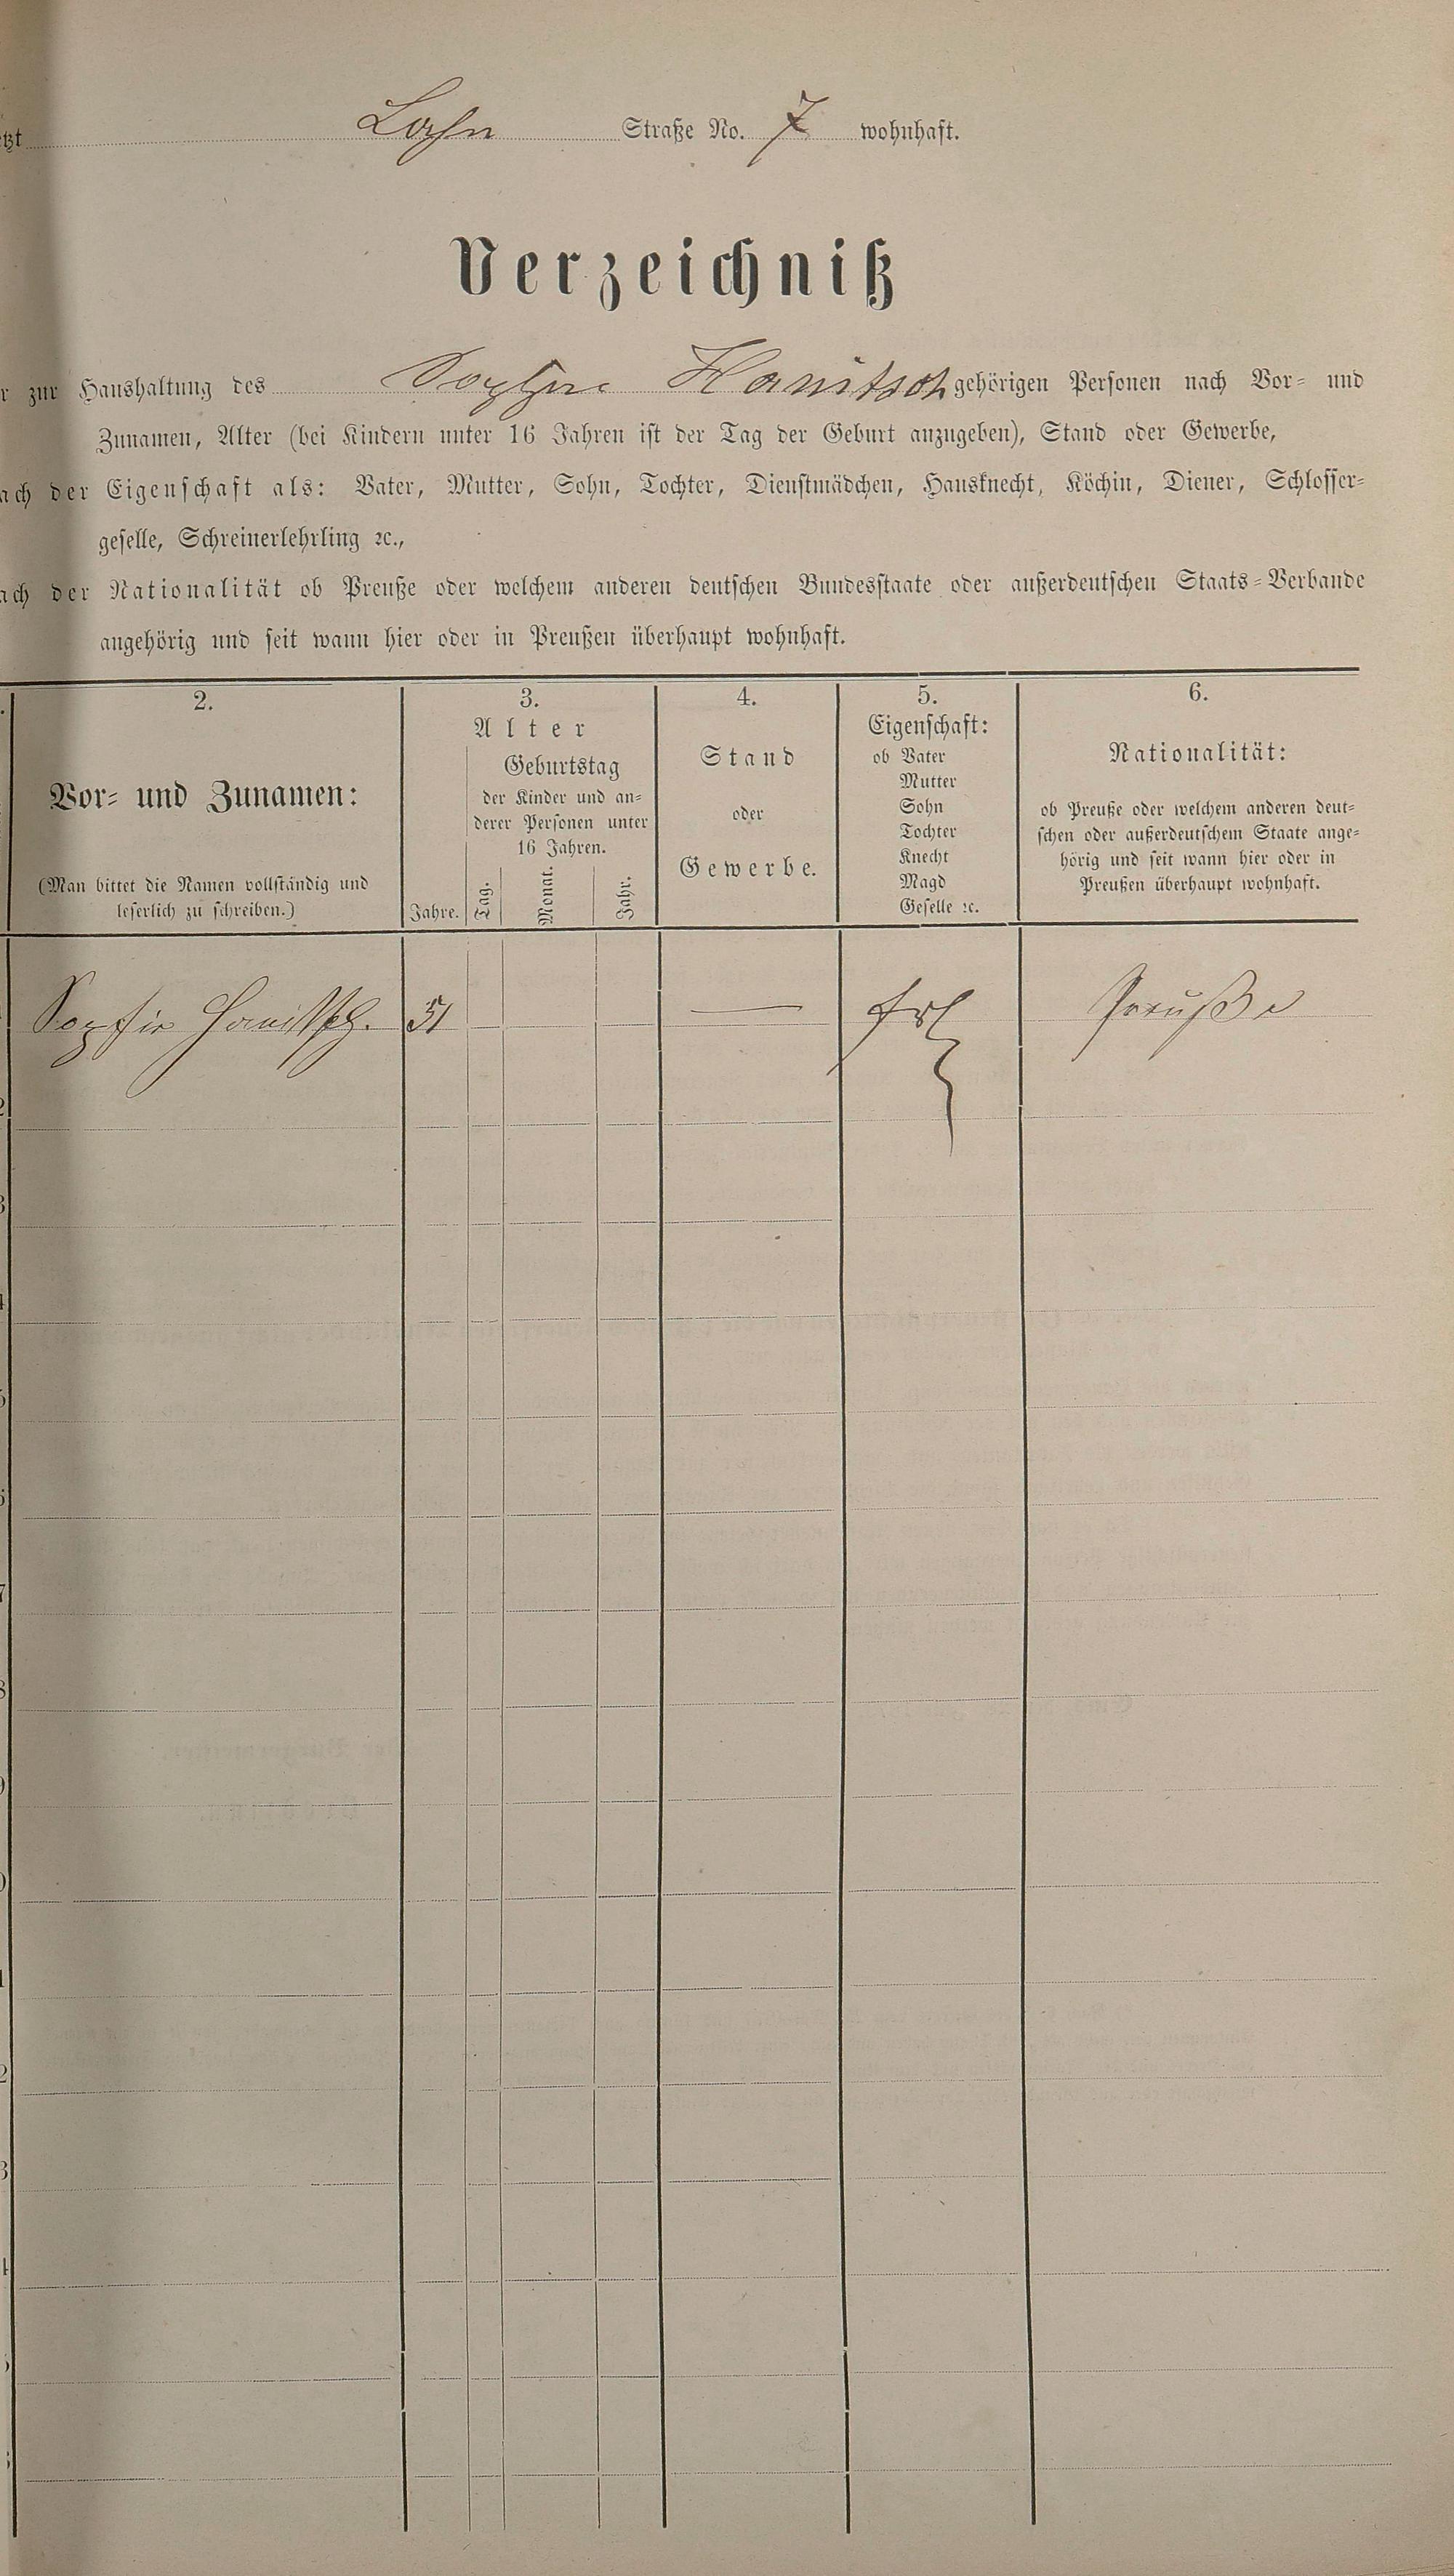 Lahn Straße No. 7 wohnhaft.
Verzeichniß
zur Haushaltung des Sophie Hanitsch gehörigen Personen nach Vor- und
Zunamen, Alter (bei Kindern unter 16 Jahren ist der Tag der Geburt anzugeben), Stand oder Gewerbe,
der Eigenschaft als: Vater, Mutter, Sohn, Tochter, Dienstmädchen, Hausknecht, Köchin, Diener, Schlosser-
geselle, Schreinerlehrling ꝛc.,
der Nationalität ob Preuße oder welchem anderen deutschen Bundesstaate oder außerdeutschen Staats-Verbande
angehörig und seit wann hier oder in Preußen überhaupt wohnhaft.
2.
Vor- und Zunamen:
(Man bittet die Namen vollständig und
leserlich zu schreiben.)
3.
Alter
Geburtstag
der Kinder und an-
derer Personen unter
16 Jahren.
Jahre. Tag. Monat. Jahr.
4.
Stand
oder
Gewerbe.
5.
Eigenschaft:
ob Vater
Mutter
Sohn
Tochter
Knecht
Magd
Geselle ꝛc.
6.
Nationalität:
ob Preuße oder welchem anderen deut-
schen oder außerdeutschem Staate ange-
hörig und seit wann hier oder in
Preußen überhaupt wohnhaft.
Sophie Hanitsch. 51 — Frl Preuße